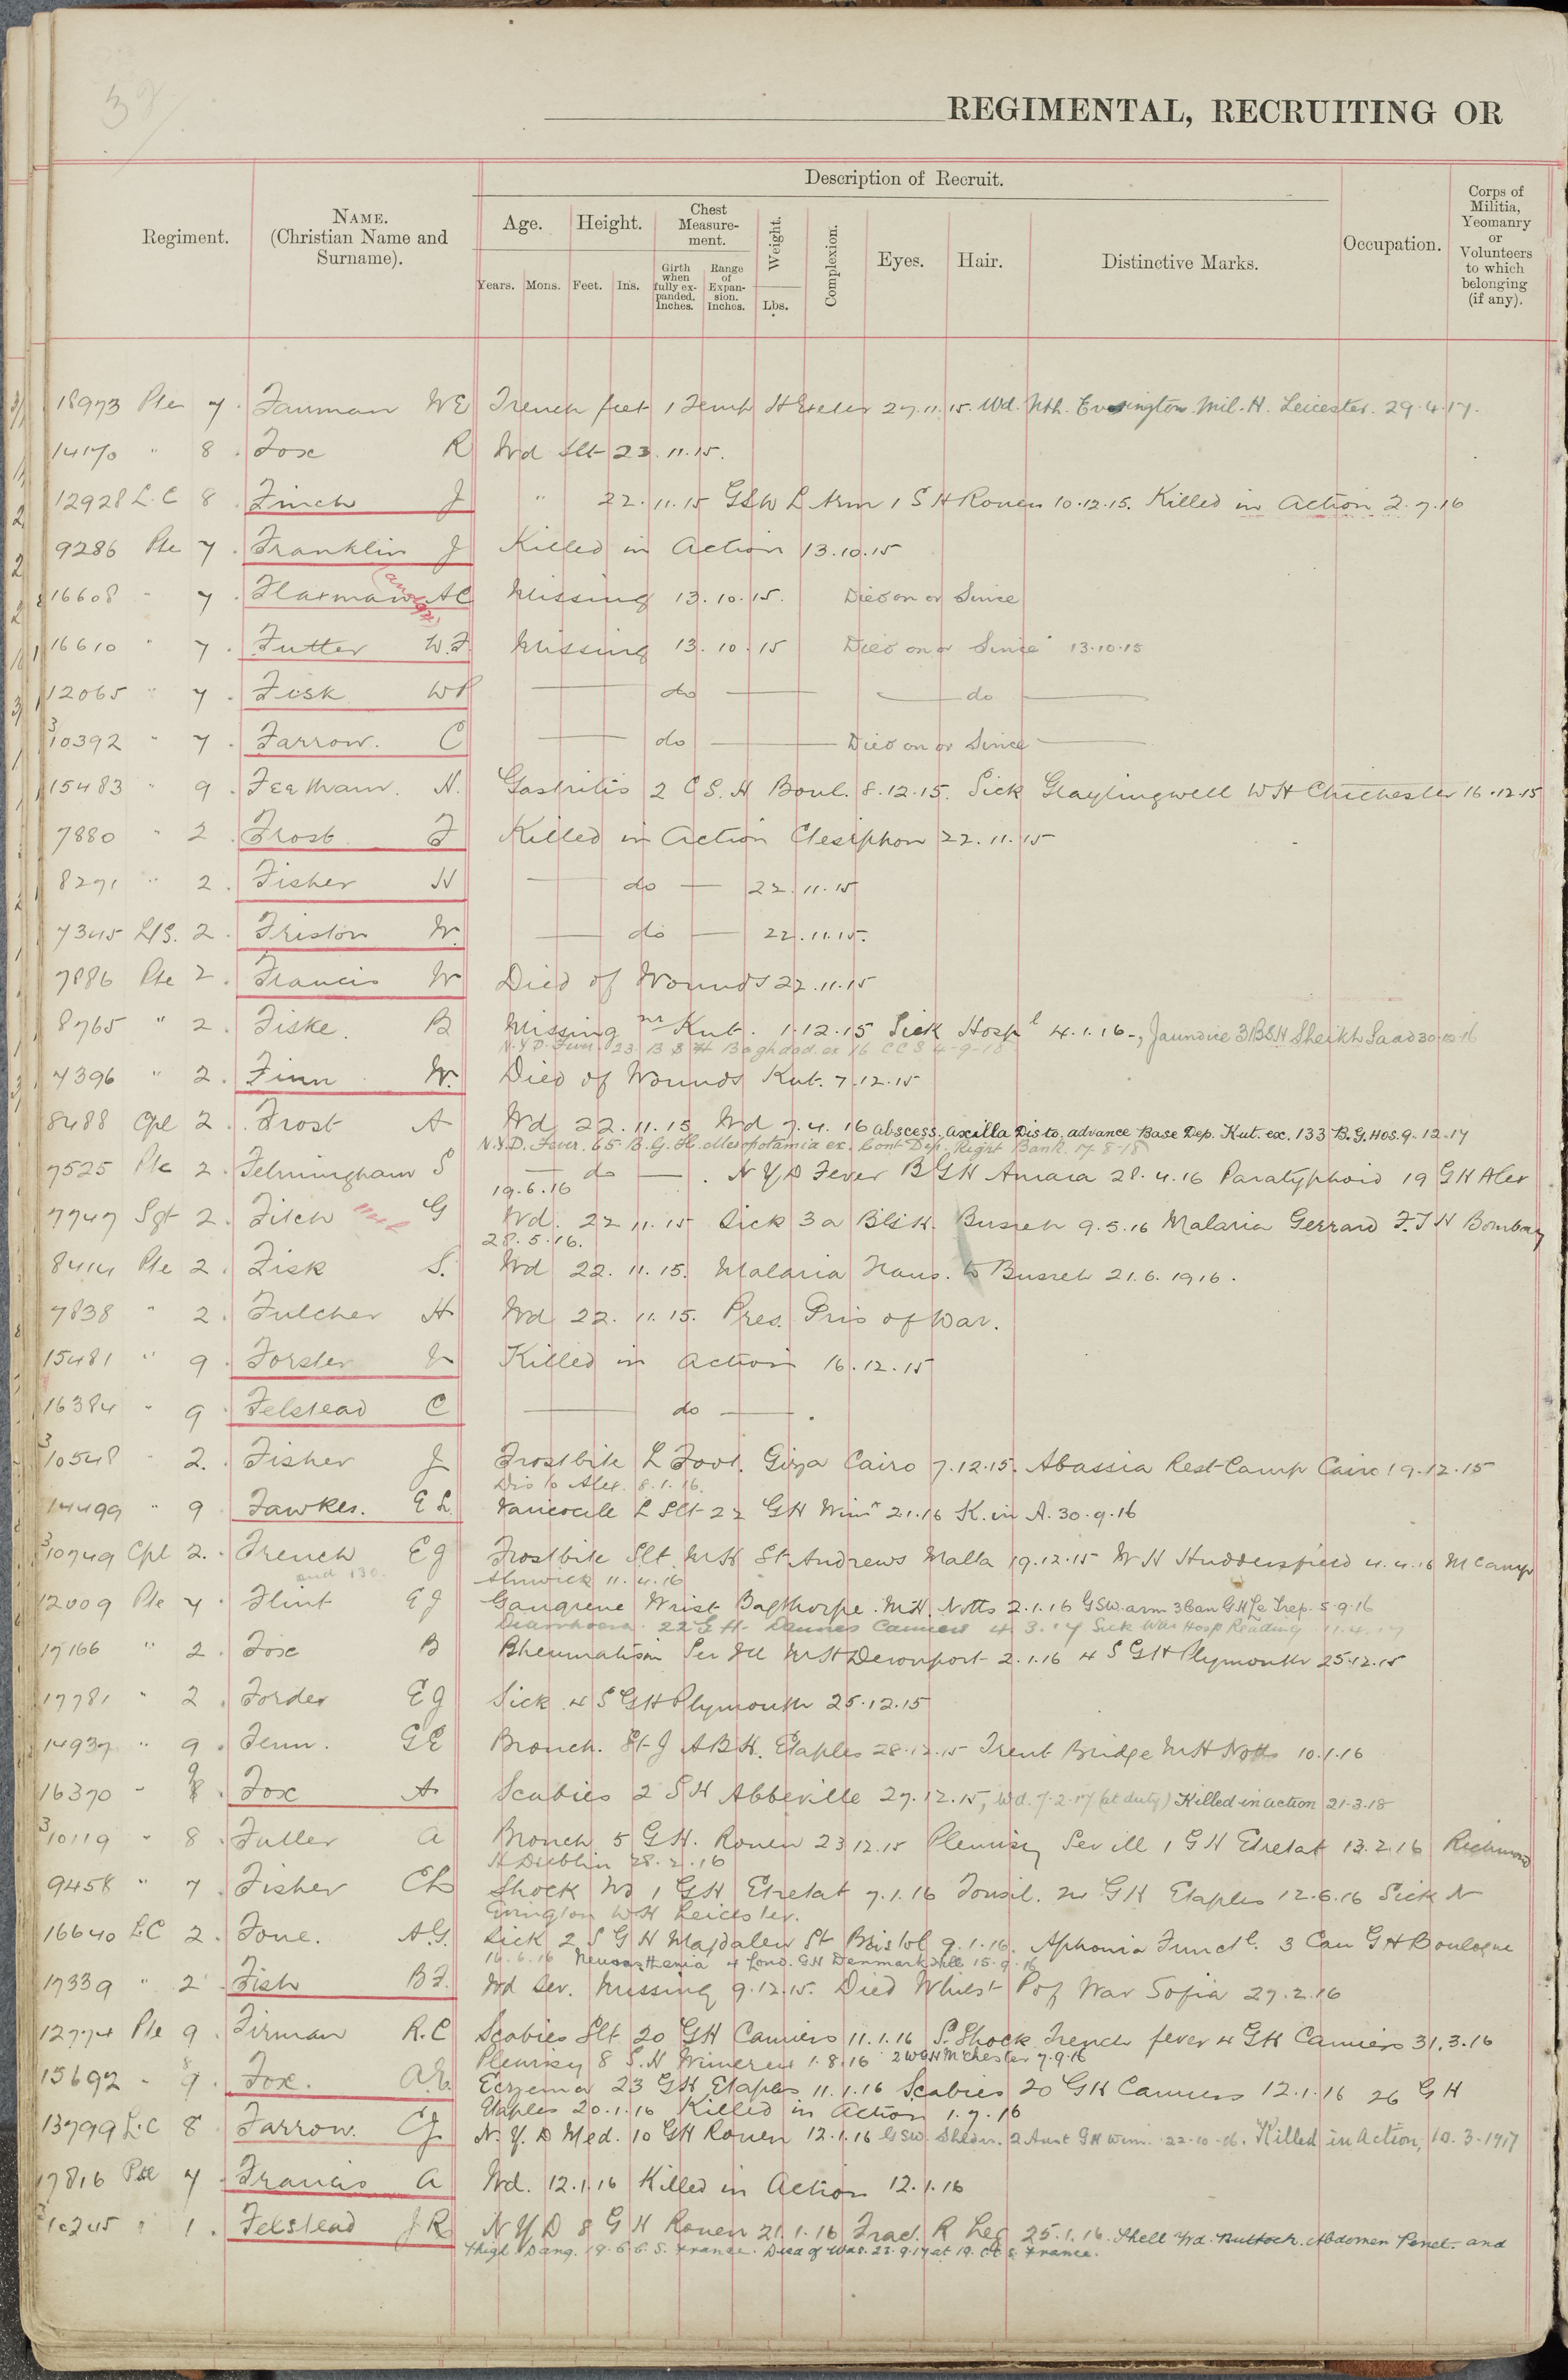 38/
REGIMENTAL, RECRUITING OR
Description of Recruit.
Regiment.
NAME.
(Christian Name and
Surname).
Age.
Height.
Chest
Measure-
ment.
Weight.
Complexion.
Eyes.
Hair.
Distinctive Marks.
Occupation.
Corps of
Militia,
Yeomanry
or
Volunteers
to which
belonging
(if any).
Years.
Mons.
Feet.
Ins.
Girth
when
fully ex-
panded.
Inches.
Range
of
Expan-
sion.
Inches.
Lbs.
18973 Pte 7. Fauman WE Trench feet 1 Temp H Exeter 27.11.15. Wd. Nth. Evington. Mil. H. Leicester. 29.4.17.
14170 " 8. Fox R Wd Slt 23.11.15.
12928 L.C 8. Finch J " 22.11.15 GSW L Arm 1 S H Rouen 10.12.15. Killed in Action 2.7.16
9286 Pte 7. Franklin J Killed in Action 13.10.15
16608 " 7. Flaxman AC Missing 13.10.15. Died on or Since
16610 " 7. Futter W.F. Missing 13.10.15 Died on or Since 13.10.15
12065 " 7. Fisk WP — do — — do —
3/10392 " 7. Farrow. C — do — Died on or Since —
15483 " 9. Feetham. H. Gastritis 2 C S. H Boul. 8.12.15. Sick Graylingwell WH Chichester 16.12.15
7880 " 2. Frost F Killed in Action Ctesiphon 22.11.15
8271 " 2. Fisher H — do — 22.11.15
7345 L/S. 2. Friston W. — do — 22.11.15.
7886 Pte 2. Francis W Died of Wounds 22.11.15
8765 " 2. Fiske. B Missing nr Kut. 1.12.15 Sick Hospl 4.1.16-, Jaundice 3 B S H Sheikh Saad 30.10.16
N.Y.D. Fever. 23 B S H Baghdad. ex 16 C C S 4-9-18
4396 " 2. Finn W. Died of Wounds Kut. 7.12.15
8488 Cpl 2. Frost A Wd 22.11.15 Wd 7.4.16 abscess, axilla Dis to. advance Base Dep. Kut. ex. 133 B.G. Hos. 9.12.17
N.Y.D. Fever. 65 B.G.H. Mesopotamia ex. Cont Dep. Right Bank. 17-8-18
7525 Pte 2. Felmingham S — do — . N Y D Fever B G H Amara 28.4.16 Paratyphoid 19 G H Alex
19.6.16
7747 Sgt 2. Fitch G Wd. 22.11.15 Sick 3a BSH. Busreh 9.5.16 Malaria Gerrard F.T H Bombay
28.5.16.
8414 Pte 2. Fisk S. Wd 22.11.15. Malaria Trans. to Busreh 21.6.1916.
7838 " 2. Fulcher H Wd 22.11.15. Pres. Pris of War.
15481 " 9. Forster Killed in Action 16.12.15
16384 " 9. Felstead C — do — .
3/10548 " 2. Fisher J Frostbite L Foot. Giza Cairo 7.12.15. Abassia Rest Camp Cairo 19.12.15
Dis to Alex. 8.1.16.
14499 " 9. Fawkes. E L. Varicocele L Slt 22 G H Wimx 2.1.16 K. in A. 30.9.16
3/10749 Cpl 2. French E G Frostbite Slt MH St Andrews Malta 19.12.15 W H Huddersfield 4.4.16 M Camp
Alnwick 11.4.16
12009 Pte 7. Flint E J Gangrene Wrist Bagthorpe. MH. Notts 2.1.16 GSW. arm 3 Can G H Le Trep. 5.9.16
Diarrhoea. 22 G H. Dannes Camiers 4.3.17 Sick War Hosp Reading 11.4.17
17166 " 2. Fox B Rheumatism Sev Ill M H Devonport 2.1.16 4 S G H Plymouth 25.12.15
17781 " 2. Forder E G Sick 4 S G H Plymouth 25.12.15
14937 " 9. Fenn. G E Bronch. St J A B H. Etaples 28.12.15 Trent Bridge M H Notts 10.1.16
16370 " 9 Fox A Scabies 2 S H Abbeville 27.12.15, Wd. 7.2.17 (at duty) Killed in action 21.3.18
3/10119 " 8. Fuller A Bronch 5 G H. Rouen 23.12.15 Pleurisy Sev ill 1 G H Etretat 13.2.16 Richmond
H Dublin 28.2.16
9458 " 7. Fisher Ch Shock Wd 1 G H Etretat 7.1.16 Tonsil. 24 G H Etaples 12.6.16 Sick N
Evington W H Leicester.
16640 L.C 2. Fone. A.G. Sick 2 S G H Majdalen St Bristol 9.1.16. Aphonia Functl. 3 Can G H Boulogne
16.6.16 Neurasthenia 4 Lond. G H Denmark Hill 15.9.16
17339 " 2. Fish B F. Wd Sev. Missing 9.12.15. Died Whilst P of War Sofia 27.2.16
12774 Pte 9. Firman R.C Scabies Slt 20 G H Camiers 11.1.16 S. Shock Trench fever 4 G H Camiers 31.3.16
Pleurisy 8 S.H Wimereux 1.8.16 2 W G H M'chester 7.9.16
15692 " 9. Fox. A.E. Eczema 23 G H Etaples 11.1.16 Scabies 20 G H Camiers 12.1.16 26 G H
Etaples 20.1.16 Killed in action 1.7.16
13799 L.C 8 Farrow. C J. N.Y.D Med. 10 G H Rouen 12.1.16 G S W. Shldr. 2 Aust G H Wim. 22-10-16. Killed in Action, 10.3.1917
17816 Pte 7. Francis A Wd. 12.1.16 Killed in Action 12.1.16
3/10245 " 1. Felstead J R N Y D 8 G H Rouen 21.1.16 Frac. R Leg 25.1.16. Shell Wd. Buttock. Abdomen Penet. and
thigh Dang. 19. C.C.S. France. Died of Wds. 22.9.17 at 19. C.C.S. France.